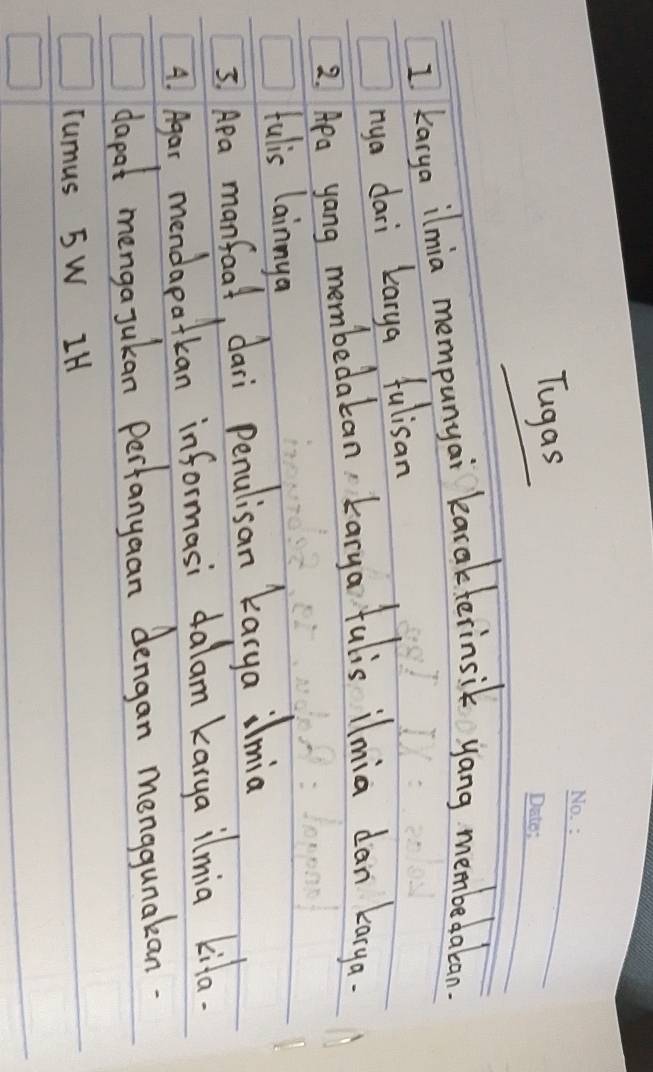 No. :
Date:
Tugas
1. karya ilmia mempunyai karakterinsik yang membedakan-
nya dari karya tulisan
2. Apa yang membedakan karya tulis ilmia dan karya-
tulis lainnya
3. Apa manfaat dari penulisan karya ilmia
4. Agar mendapatkan informasi dalam karya ilmia kita-
dapat mengajukan pertanyaan dengan menggunakan-
rumus 5W 1H